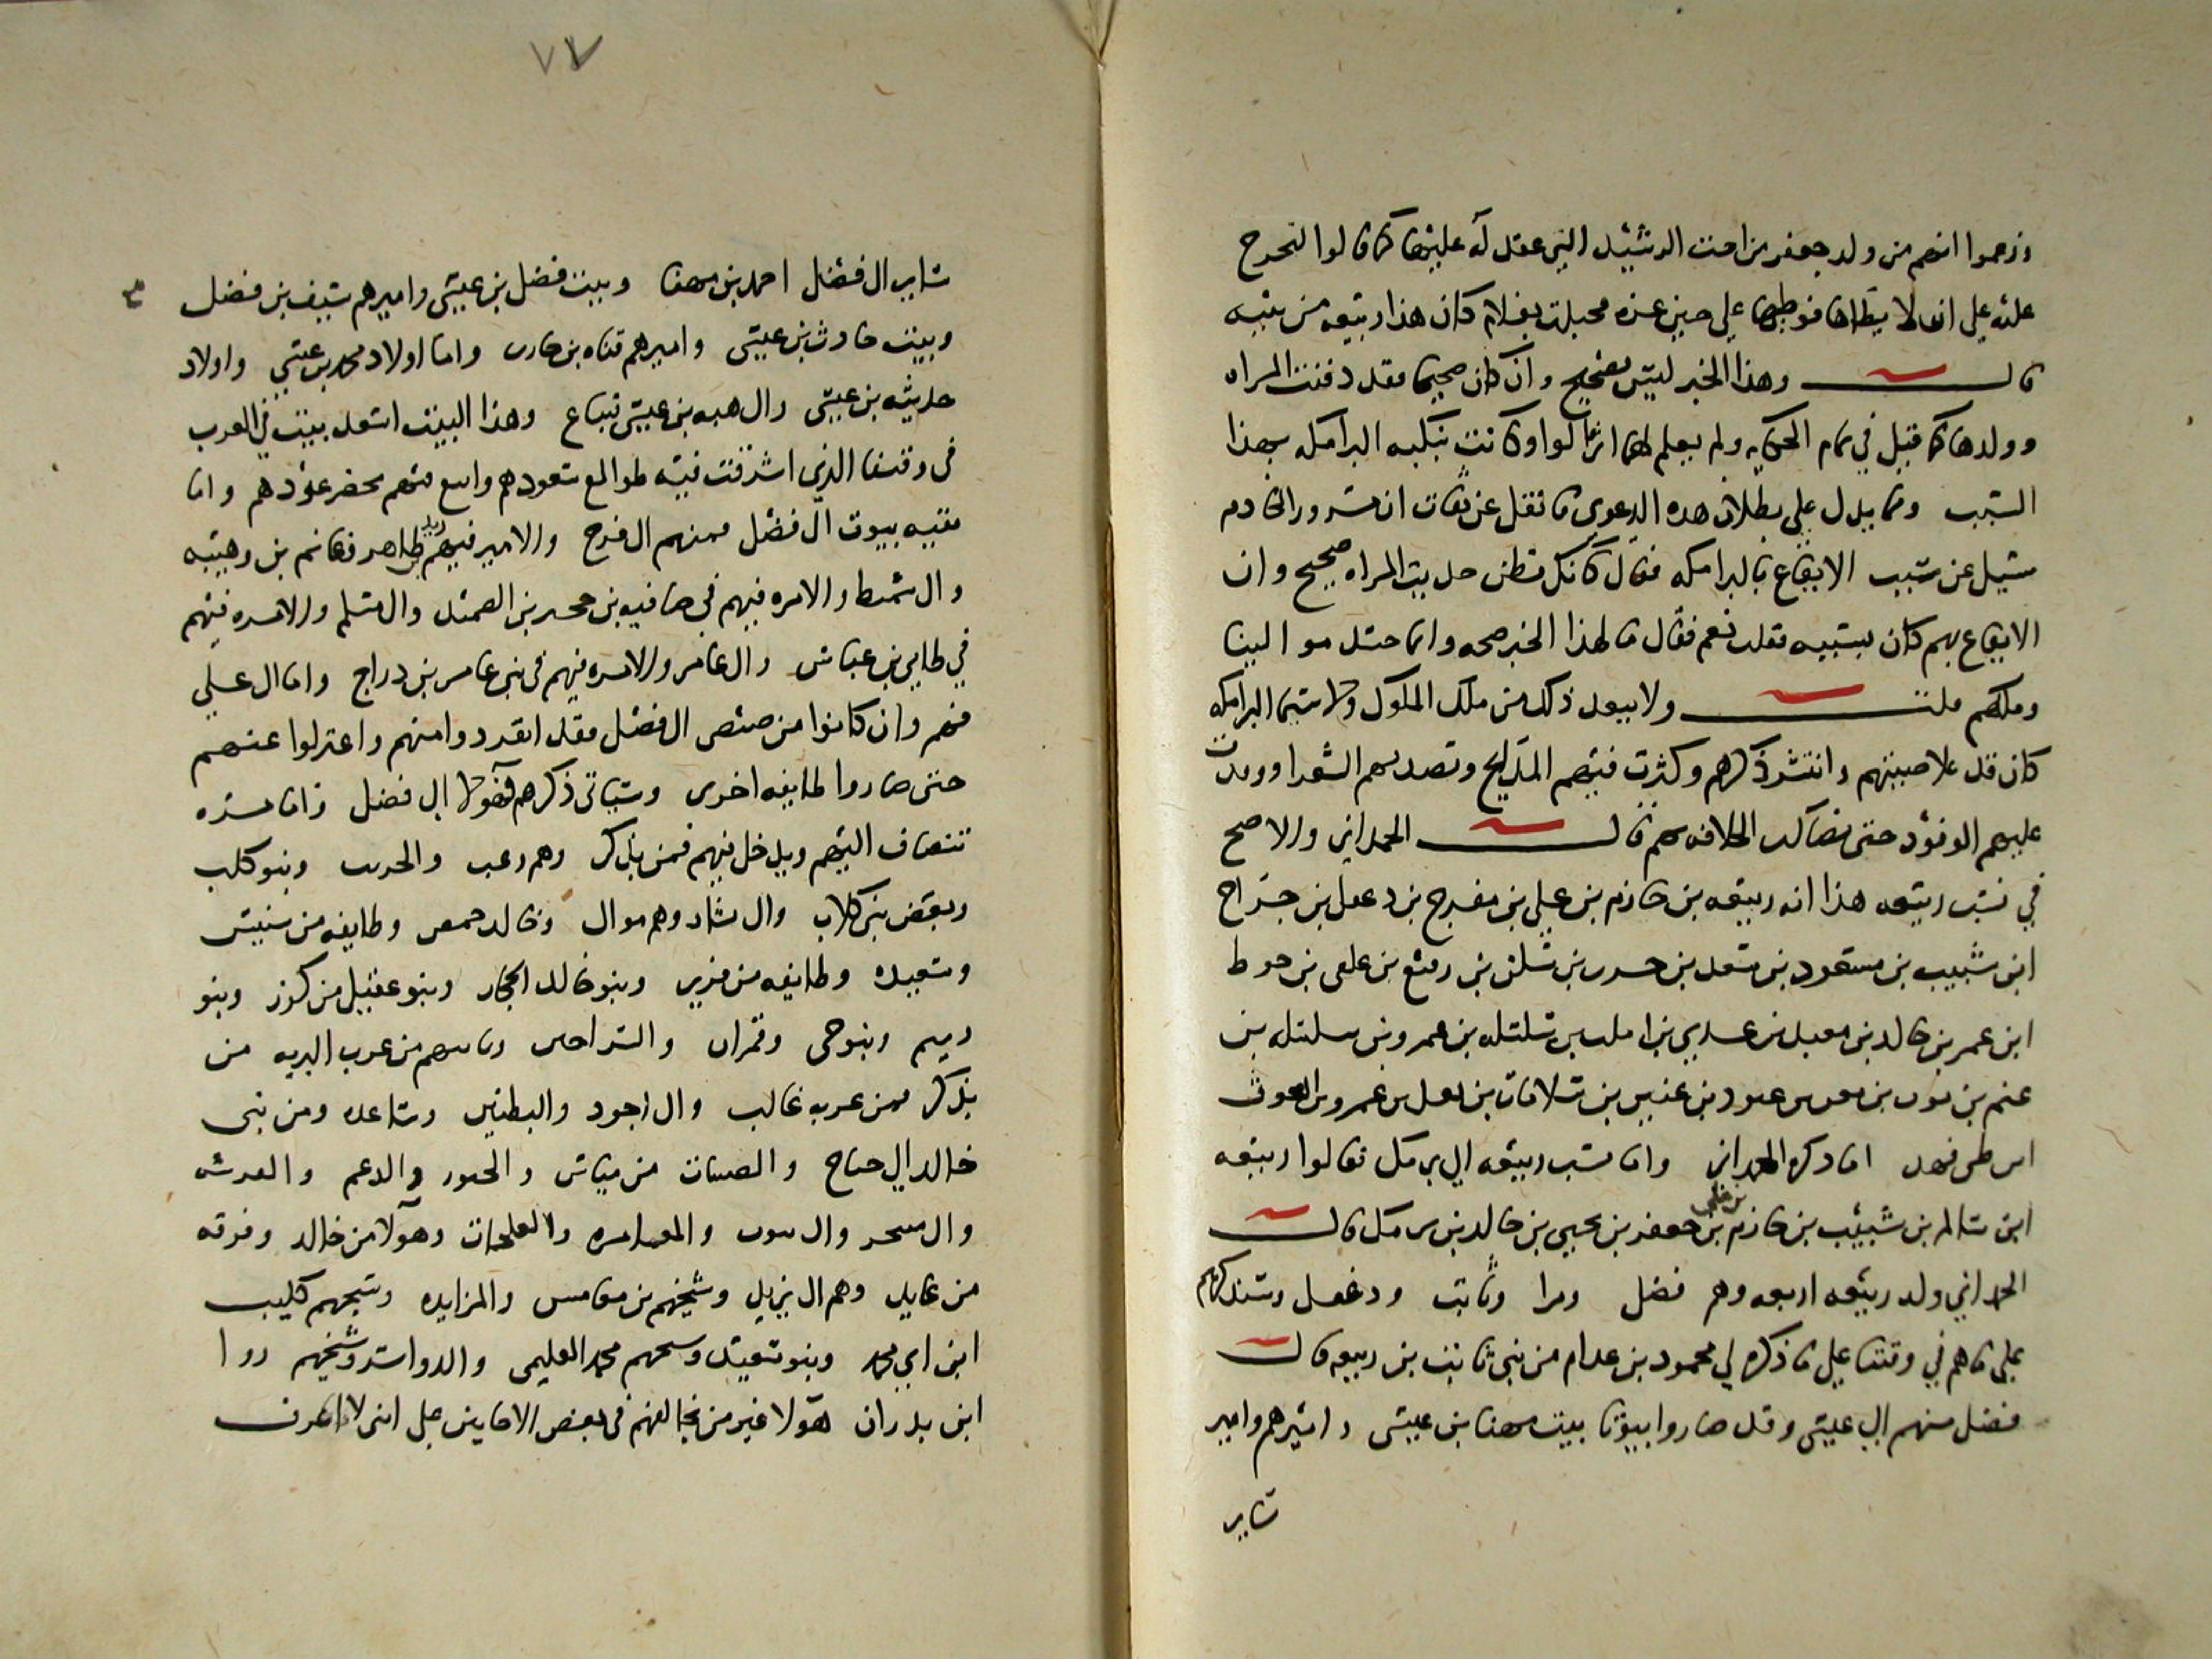 وزعموا انهم من ولد جعفر من اخت الرشيد التي عقد له عليها كما قالوا لتخرج
عليه على انه لا يطاها فوطيها على حين غره فحبلت بغلام كان هذا ربيعه من بنيه
قال وهذا الخبر ليس بصحيح وان كان صحيحا فقد دفنت المراه
وولدها كما قيل في تمام الحكايه ولم يعلم لهما اثر قالوا وكانت نكبه البرامكه بهذا
السبب ومما يدل على بطلان هذه الدعوى ما نقل عن ثقات ان مسرور الخادم
سيل عن سبب الايقاع بالبرامكه فقال كانك تظن حديث المراه صحيح وان
الايقاع بهم كان بسببه فقلت نعم فقال ما لهذا الخبر صحه وانما حسد موالينا
وملكهم قلت ولا يبعد ذلك من ملك الملوك ولا سيما البرامكه
كان قد علا صيتهم وانتشر ذكرهم وكثرت فيهم المدايح وقصدهم الشعرا ووفدت
عليهم الوفود حتى قال الحمداني والاصح
في نسب ربيعه هذا انه ربيعه بن حازم بن علي بن مفرج بن دغفل بن جراح
ابن شبيب بن مسعود بن سعد بن حرب بن السكن بن رفيع بن علقى بن حوط
ابن عمر بن خالد بن معبد بن عدي بن افلت بن سلسله بن عمرو بن سلسله بن
غنم بن ثوب بن معن بن عتود بن عنين بن سلامان بن ثعل بن عمرو بن الغوث
ابن طي فهد اما ذكره الحمداني واما نسب ربيعه الى برمك فقالوا ربيعه
ابن سالم بن شبيب بن حازم بن علي بن جعفر بن يحيى بن خالد بن برمك قال
الحمداني ولد ربيعه اربعه وهم فضل ومرا وثابت ودغفل وسنذكرهم
على ما هم في وقتنا على ما ذكره لي محمود بن عرام من بني ثابت بن ربيعه قال
فضل منهم ال عيسى وقد صاروا بيوتا بيت مهنا بن عيسى واميرهم وامير
ساير
٧٧
ساير ال فضل احمد بن مهنا وبيت فضل بن عيسى واميرهم سيف بن فضل
وبيت حارث بن عيسى واميرهم قناه بن حارث واما اولاد محمد بن عيسى واولاد
حديثه بن عيسى وال هبه بن عيسى تباع وهذا البيت اسعد بيت في العرب
في وقتنا الذي اشرقت فيه طوالع سعودهم وانبع منهم مخضر عودهم واما
بقيه بيوت ال فضل فمنهم ال فرج والامير فيهم ظاهر وغانم بن وهيبه
وال شمط والامره فيهم في صافيه بن محجر بن الصمد وال مسلم والامره فيهم
في طايي بن عباس وال عامر والامره فيهم في بني عامر بن دراج واما ال علي
فهم وان كانوا من ضيضي ال فضل فقد انفردوا منهم واعتزلوا عنهم
حتى صاروا طايفه اخرى وسياتي ذكرهم فهولا ال فضل واما من
تنضاف اليهم ويدخل فيهم فمن يذكر وهم زعب والحريث وبنو كلب
وبعض بني كلاب وال بشار وهم موال وخالد حمص وطايفه من سنبس
وسعيده وطايفه من فزير وبنو خالد الحجاز وبنو عقيل من كوز وبنو
رميم وبنو حي وقمران والسراحين وياتيهم من عرب البريه من
يذكر فمن عربه غالب وال اجود والبطنين وساعده ومن بني
خالد ال جناح والصبيات من مياس والحبور والدعم والقرشه
وال منيحر وال بيوت والمعامره والعلجات وهولا من خالد وفرقه
من عايد وهم ال يزيد وشيخهم بن مغامس والمزايده وشيخهم كليب
ابن ابي محمد وبنو سعيد وشيخهم محمد العليمي والدواسر وشيخهم روا
ابن بدران هولا غير من يخالفهم في بعض الاحايين على انني لا اعرف